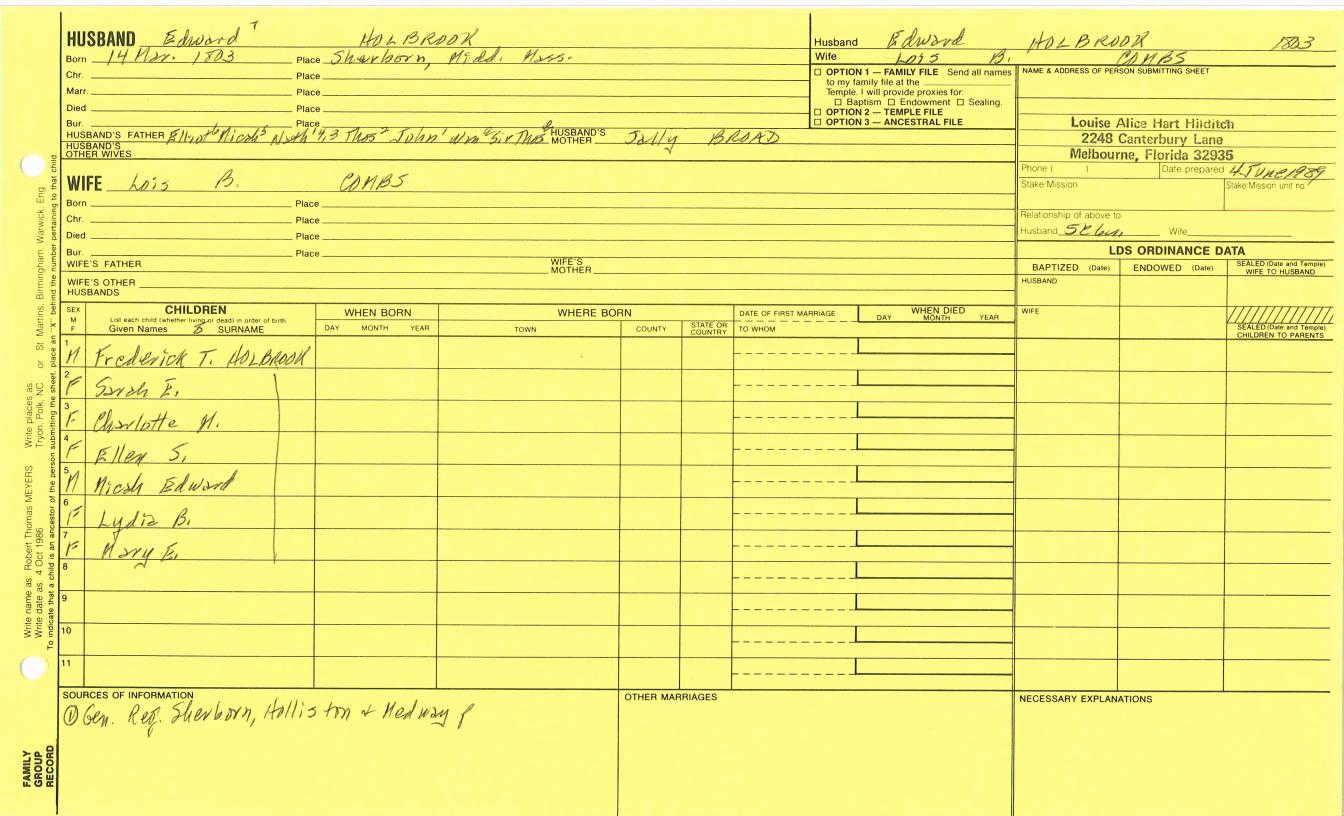 HUSBAND Edward 7 HOLBROOK
Born 14 Mar. 1803 Place Sherborn, Midd. Mass.
Chr. Place
Marr. Place
Died Place
Bur. Place
HUSBAND'S FATHER Elliot 6 Micah 5 Nath'l 4,3 Thos 2 John 1 Wm Sir Thos HUSBAND'S MOTHER Sally BROAD
HUSBAND'S OTHER WIVES
WIFE Lois B. COMBS
Born Place
Chr. Place
Died Place
Bur. Place
WIFE'S FATHER WIFE'S MOTHER
WIFE'S OTHER HUSBANDS
Husband Edward HOLBROOK 1803
Wife Lois B. COMBS
☐ OPTION 1 — FAMILY FILE Send all names
to my family file at the
Temple. I will provide proxies for:
☐ Baptism ☐ Endowment ☐ Sealing.
☐ OPTION 2 — TEMPLE FILE
☐ OPTION 3 — ANCESTRAL FILE
NAME & ADDRESS OF PERSON SUBMITTING SHEET
Louise Alice Hart Hilditch
2248 Canterbury Lane
Melbourne, Florida 32935
Phone ( ) Date prepared 4 June 1989
Stake/Mission Stake/Mission unit no.
Relationship of above to
Husband Wife
LDS ORDINANCE DATA
BAPTIZED (Date) ENDOWED (Date) SEALED (Date and Temple) WIFE TO HUSBAND
HUSBAND
WIFE
SEALED (Date and Temple) CHILDREN TO PARENTS
SEX M F
CHILDREN
List each child (whether living or dead) in order of birth
Given Names 8 SURNAME
WHEN BORN
DAY MONTH YEAR
WHERE BORN
TOWN COUNTY STATE OR COUNTRY
DATE OF FIRST MARRIAGE
TO WHOM
WHEN DIED
DAY MONTH YEAR
1 M Frederick T. HOLBROOK
2 F Sarah E.
3 F Charlotte M.
4 F Ellen S.
5 M Micah Edward
6 F Lydia B.
7 F Mary E.
8
9
10
11
SOURCES OF INFORMATION
① Gen. Reg. Sherborn, Holliston & Medway p
OTHER MARRIAGES
NECESSARY EXPLANATIONS
Write name as: Robert Thomas MEYERS Write places as: Tryon, Polk, NC or St. Martins, Birmingham, Warwick, Eng.
Write date as: 4 Oct 1986
To indicate that a child is an ancestor of the person submitting the sheet, place an "X" behind the number pertaining to that child.
FAMILY GROUP RECORD